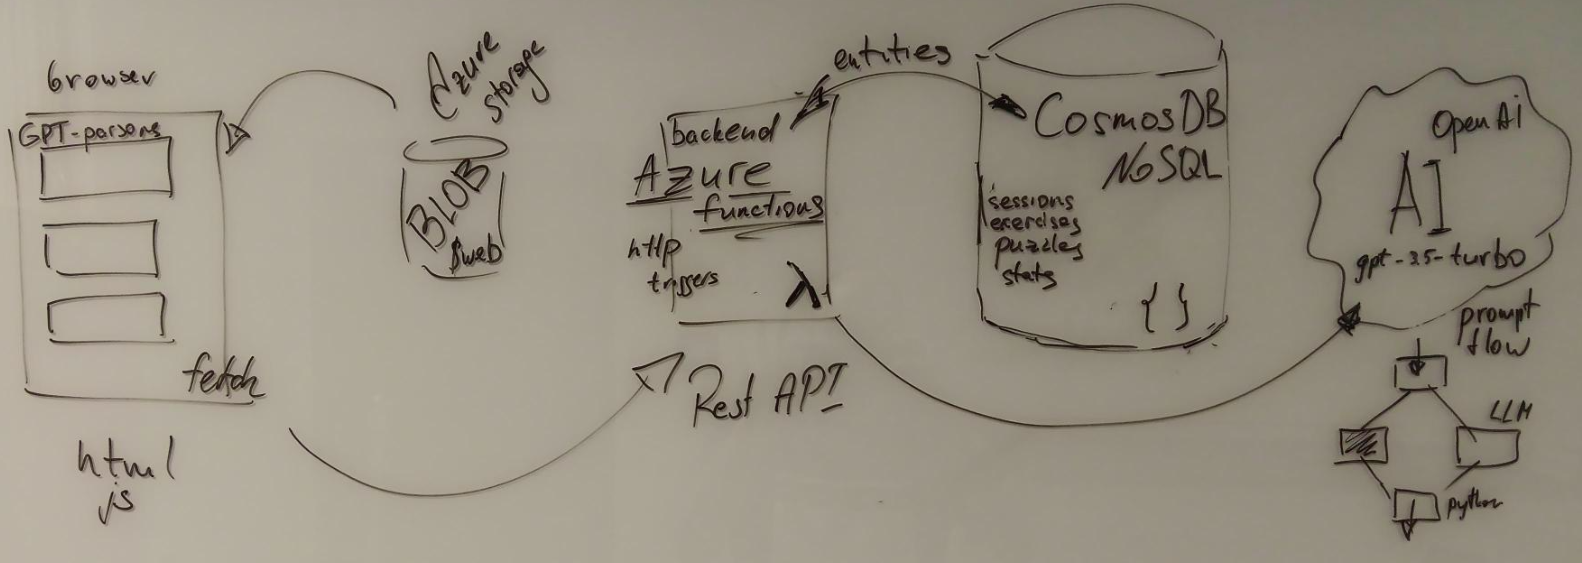 browser
GPT-parsons
fetch
html
js
Azure
storage
BLOB
$web
backend
Azure
functions
http
triggers
λ
Rest API
entities
CosmosDB
NoSQL
sessions
exercises
puzzles
stats
{ }
OpenAi
AI
gpt-3.5-turbo
prompt
flow
LLM
python